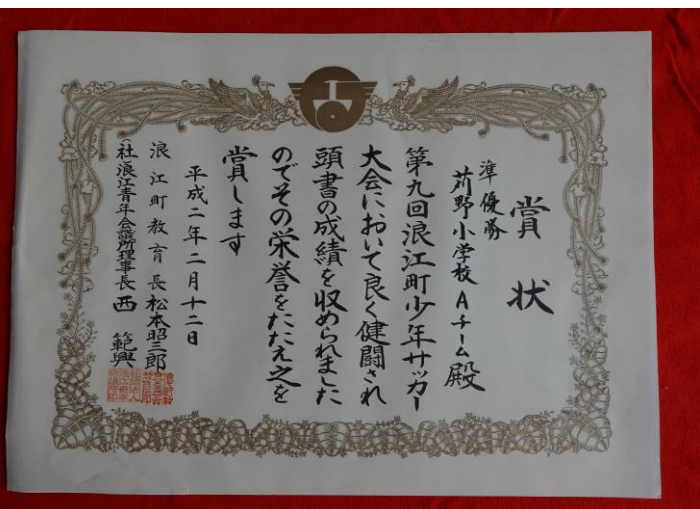 賞状
準優勝
苅野小学校Aチーム殿
第九回浪江町少年サッカー
大会において良く健闘され
頭書の成績を収められました
のでその栄誉をたたえ之を
賞します
平成二年二月十二日
浪江町教育長松本昭三郎
(社)浪江青年会議所理事長西範興